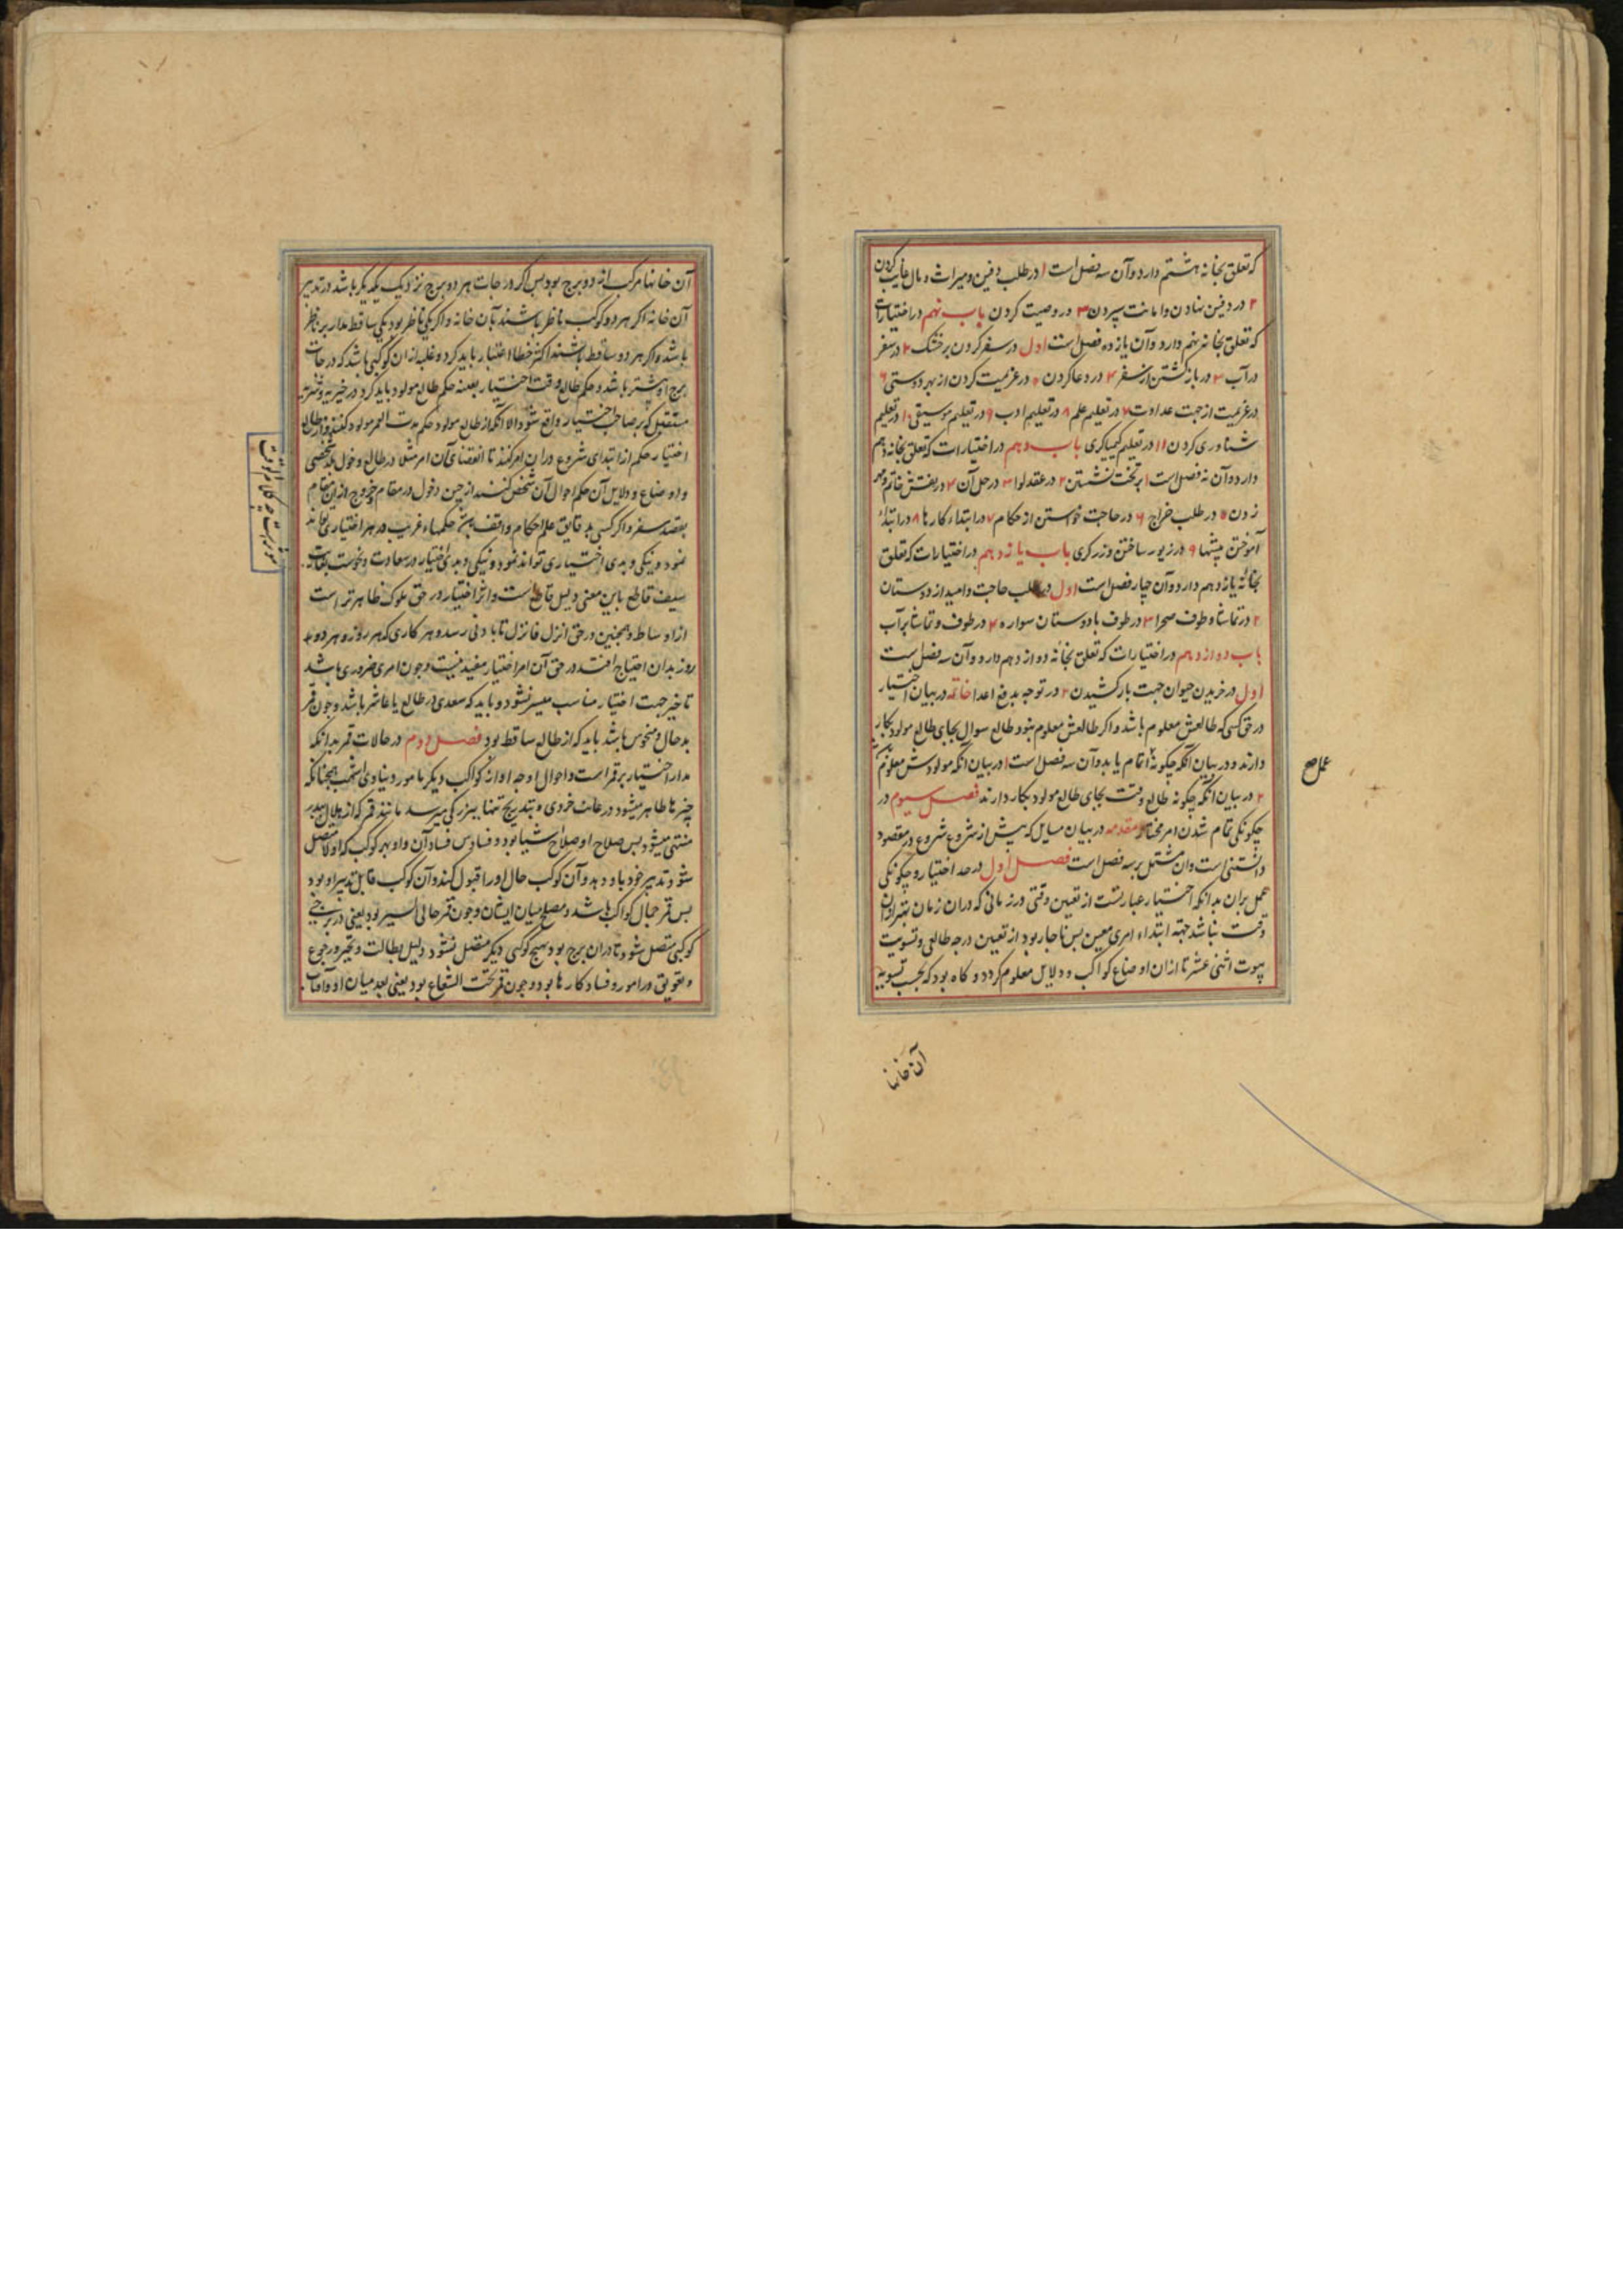 که تعلق بخانه هشتم دارد و آن سه فصل است ۱ در طلب دفین و میراث و مال غایب کردن
۲ در دفین نهادن و امانت سپردن ۳ در وصیت کردن باب نهم در اختیارات
که تعلق بخانه نهم دارد و آن یازده فصل است اول در سفر کردن بر خشک ۲ در سفر
در آب ۳ در بازگشتن از سفر ۴ در دعا کردن ۵ در عزیمت کردن از بهر دوستی ۶
در عزیمت از جهت عداوت ۷ در تعلیم علم ۸ در تعلیم ادب ۹ در تعلیم موسیقی ۱۰ در تعلیم
شناوری کردن ۱۱ در تعلیم کیمیاگری باب دهم در اختیارات که تعلق بخانه دهم
دارد و آن نه فصل است ۱ بر تخت نشستن ۲ در عقد لوا ۳ در حل آن ۴ در نقش خاتم و مهر
زدن ۵ در طلب خراج ۶ در حاجت خواستن از حکام ۷ در ابتداء کارها ۸ در ابتداء
آموختن پیشها ۹ در زیور ساختن و زرگری باب یازدهم در اختیارات که تعلق
بخانه یازدهم دارد و آن چهار فصل است اول در طلب حاجت و امید از دوستان
۲ در تماشا و طوف صحرا ۳ در طوف با دوستان سواره ۴ در طوف و تماشا بر آب
باب دوازدهم در اختیارات که تعلق بخانه دوازدهم دارد و آن سه فصل است
اول در خریدن حیوان جهت بار کشیدن ۲ در توجه بدفع اعدا خاتمه در بیان اختیار
در حق کسی که طالعش معلوم باشد و اکر طالعش معلوم نبود طالع سوال بجای طالع مولود بکار
دارند و در بیان آنکه چگونه اتمام یابد و آن سه فصل است ۱ در بیان آنکه مولودش معلوم
۲ در بیان آنکه چگونه طالع وقت بجای طالع مولود بکار دارند فصل سیوم در
چگونگی تمام شدن امر مختار مقدمه در بیان مسایل که پیش از شروع شروع در مقصود
دانستنی است و ان مشتمل بر سه فصل است فصل اول در حد اختیار و چگونگی
عمل بران بدانکه اختیار عبارتست از تعیین وقتی و زمانی که دران زمان بهتر از ان
وقت نباشد جهته ابتداء امری معین پس ناچار بود از تعیین درجه طالع و تسویت
بیوت اثنی عشر تا از ان اوضاع کواکب و دلایل معلوم کردد و گاه بود که بحسب تسویه
عمل صح
آن خانها
آن خانها مرکب از دو برج بود پس اکر درجات هر دو برج نزدیک یکدیگر باشد در تدبیر
آن خانه اکر هر دو کوکب ناظر باشند بآن خانه و اکر یکی ناظر بود یکی ساقط مدار بر ناظر
باشد و اکر هر دو ساقط باشند اکثر خطا اعتبار باید کرد و غلبه از ان کوکبی باشد که درجات
برج او بیشتر باشد و حکم طالع وقت اختیار بعینه حکم طالع مولود باید کرد در خیریه و شریه
مستقبل که بر صاحب اختیار واقع شود الا آنکه از طالع مولود حکم مدت العمر مولود کنند و از طالع
اختیار حکم از ابتدای شروع دران امر کنند تا انقضای آن امر مثلا در طالع دخول شخصی
و اوضاع و دلایل آن حکم احوال آن شخص کنند از حین دخول در مقام خروج از این مقام
بقصد سفر و اکر کسی بدقایق علم احکام واقف حکمهاء غریب در هر اختیاری تواند
نمود و نیکی و بدی اختیاری تواند نمود و نیکی و بدی اختیار در سعادت و نحوست
سیف قاطع باین معنی دلیل قاطع است و اثر اختیار در حق ملوک ظاهرتر است
از اوساط و همچنین در حق انزل فانزل تا بادنی رسد و هر کاری که هر روزه و هر دو
روز بدان احتیاج افتد در حق آن امر اختیار مفید نیست و چون امری ضروری باشد
تا خیر جهت اختیار مناسب میسر نشود باید که سعدی در طالع یا عاشر باشد و چون قمر
بدحال و منحوس باشد باید که از طالع ساقط بود فصل دوم در حالات قمر بدانکه
مدار اختیار بر قمر است و احوال او چه او از کواکب دیگر بامور دنیاوی همچنانکه
چیزها ظاهر میشود در غایت خردی و بتدریج بنهایت بزرکی میرسد مانند قمر که از هلال ببدر
منتهی میشود پس صلاح او صلاح اشیا بود و فساد آن و او بهر کوکب که اولا متصل
شود تدبیر خود باو دهد و آن کوکب حال او را قبول کند و آن کوکب قابل تدبیر او بود
پس قمر حمال کواکب باشد و مصلح میان ایشان و چون قمر خالی السیر بود یعنی در برجی
کوکبی متصل شود تا دران برج بود بهیچ کوکبی دیگر متصل نشود دلیل بطالت و تحیر و رجوع
و تعویق در امور و فساد کارها بود و چون قمر تحت الشعاع بود یعنی بعد میان او و آفتاب